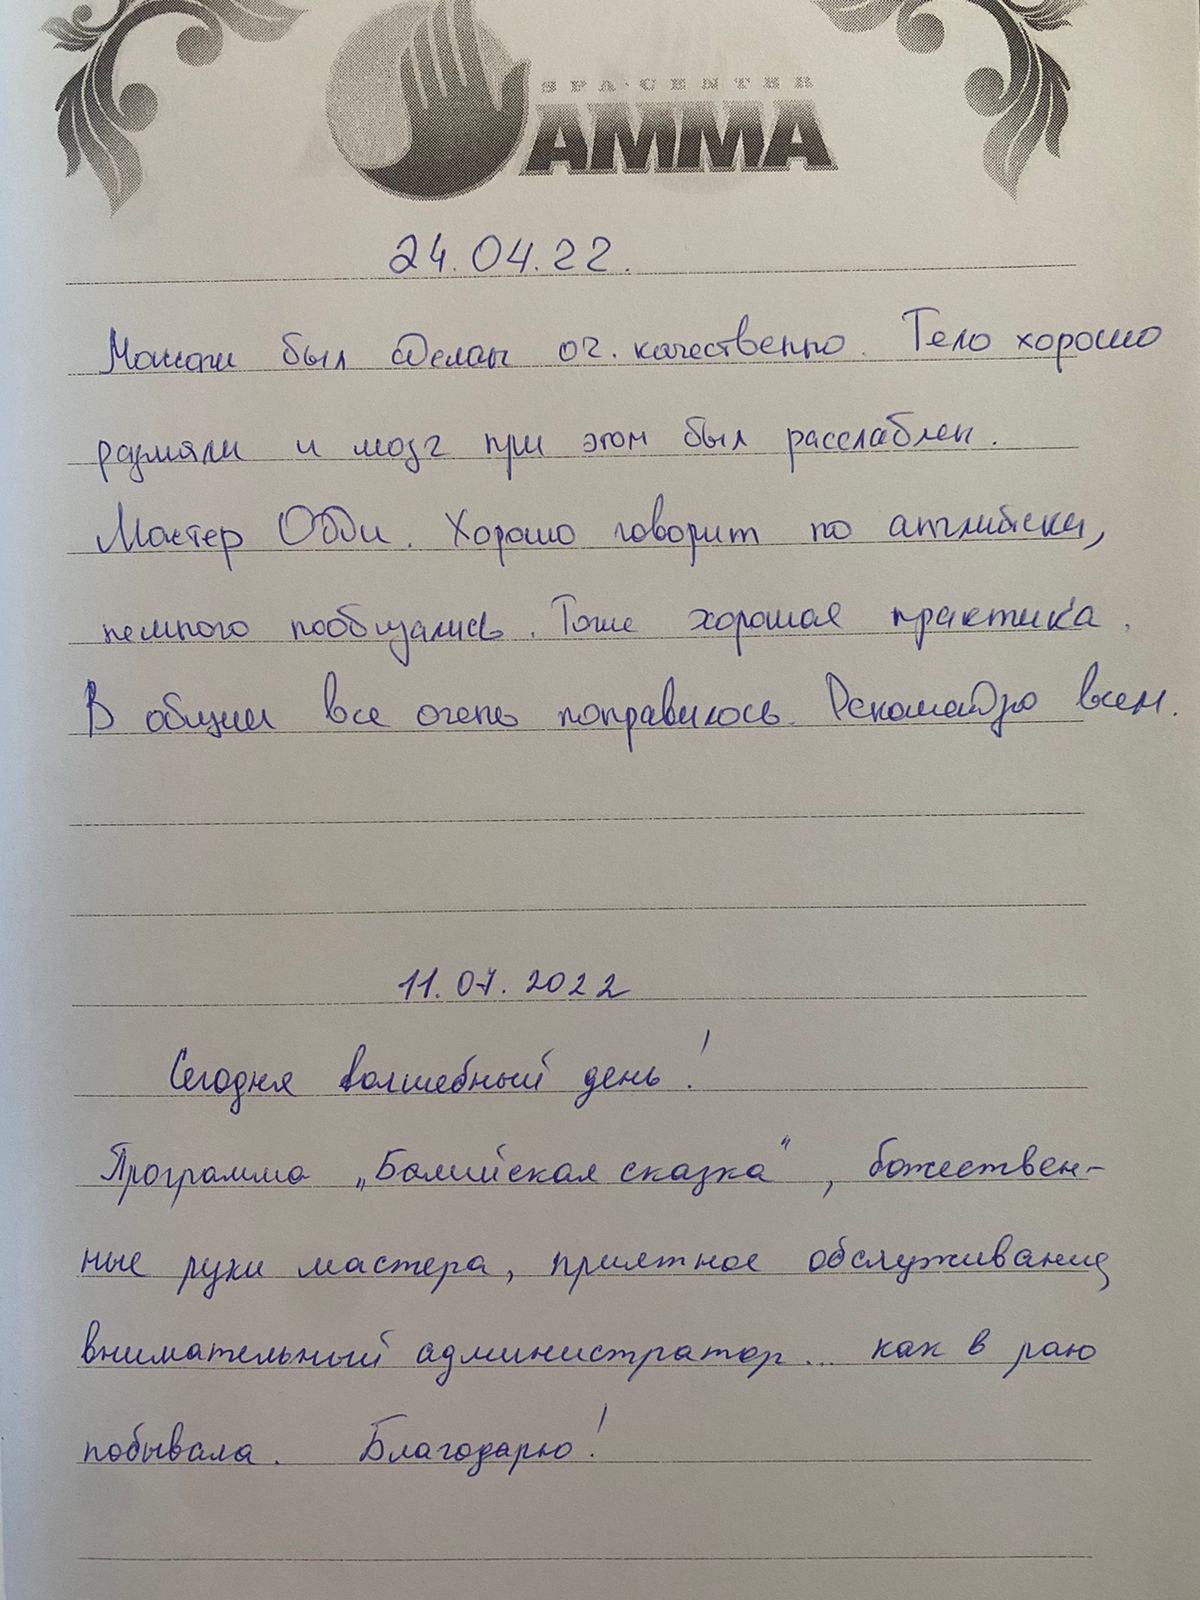 SPA-CENTER
AMMA
24.04.22.
Массаж был сделан оч. качественно. Тело хорошо
размяли и мозг при этом был расслаблен.
Мастер Обди. Хорошо говорит по английски,
немного пообщались. Тоже хорошая практика.
В общем все очень понравилось. Рекомендую всем.
11.07.2022
Сегодня волшебный день!
Программа „Балийская сказка", божествен-
ные руки мастера, приятное обслуживание,
внимательный администратор... как в раю
побывала. Благодарю!